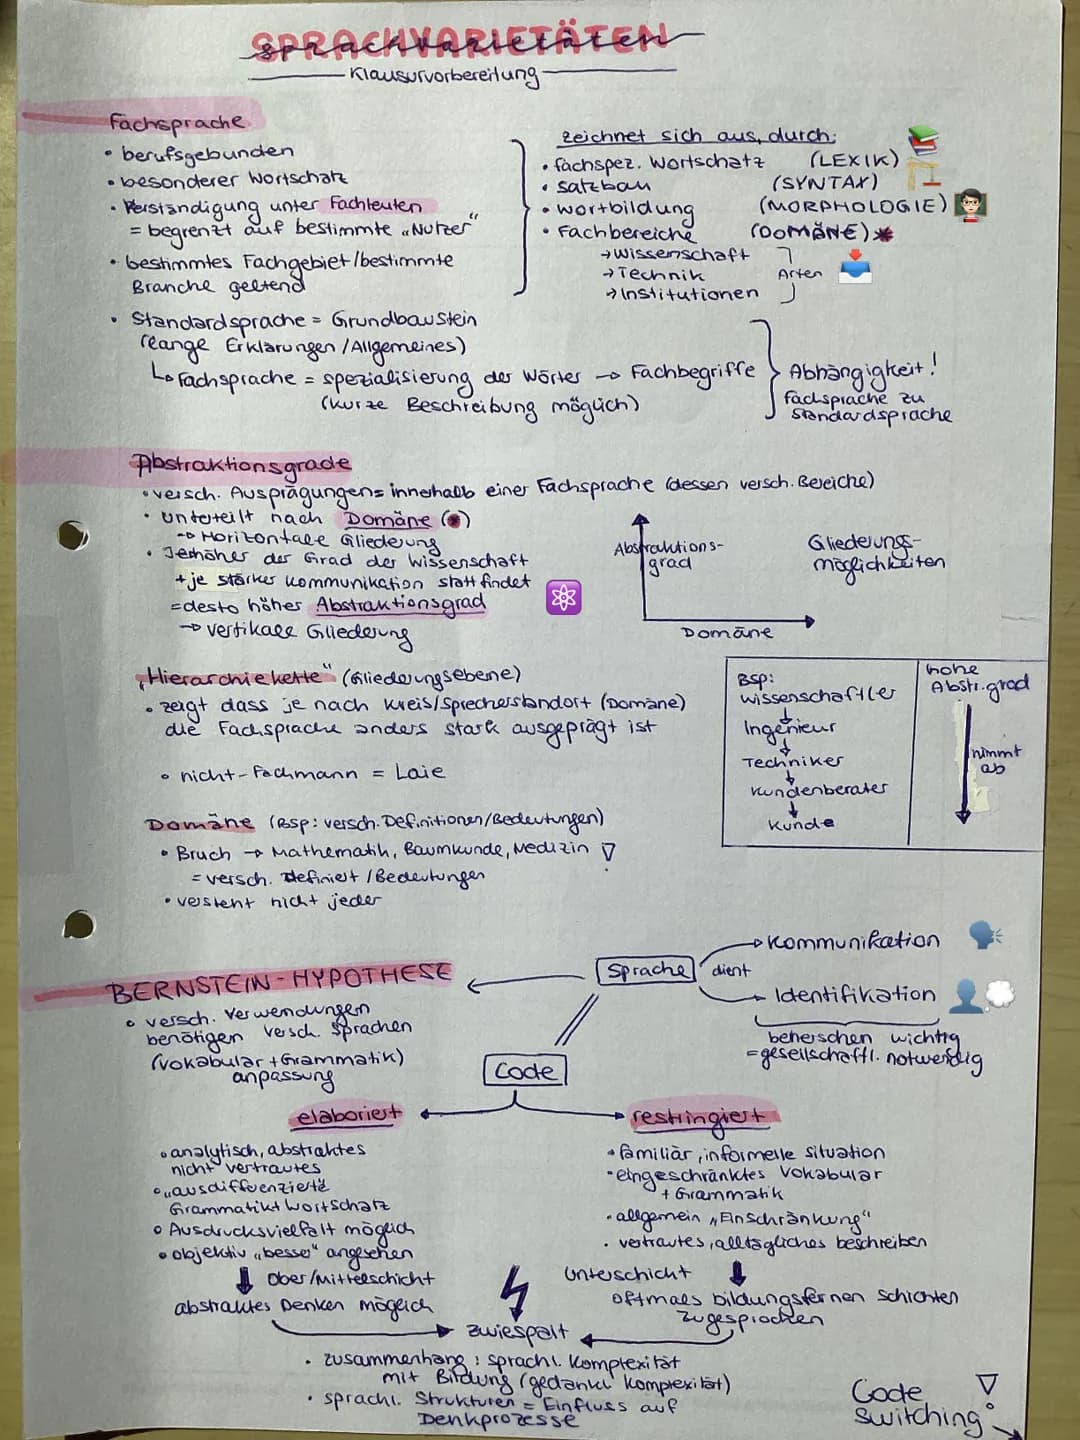 SPRACHVARIETÄTEN
sprachvarietäten
Klausurvorbereitung
Fachsprache
• berufsgebunden
• besonderer Wortschatz
• Verständigung unter Fachleuten
= begrenzt auf bestimmte „Nutzer"
• bestimmtes Fachgebiet/bestimmte
Branche geltend
zeichnet sich aus, durch:
• fachspez. Wortschatz (LEXIK)
• Satzbau (SYNTAX)
• Wortbildung (MORPHOLOGIE)
• Fachbereiche (DOMÄNE)*
→ Wissenschaft
→ Technik
→ Institutionen
Arten
• Standardsprache = Grundbaustein
(lange Erklärungen/Allgemeines)
↳ Fachsprache = spezialisierung der Wörter → Fachbegriffe
(kurze Beschreibung möglich)
Abhängigkeit!
Fachsprache zu
Standardsprache
Abstraktionsgrade
• versch. Ausprägungen = innerhalb einer Fachsprache (dessen versch. Bereiche)
• Unterteilt nach Domäne (*)
→ Horizontale Gliederung
• Je höher der Grad der Wissenschaft
+ je stärker Kommunikation stattfindet
= desto höher Abstraktionsgrad
→ vertikale Gliederung
Abstraktions-
grad
Domäne
Gliederungs-
möglichkeiten
„Hierarchiekette" (Gliederungsebene)
• zeigt dass je nach Kreis/Sprecherstandort (Domäne)
die Fachsprache anders stark ausgeprägt ist
• nicht-Fachmann = Laie
BSP:
Wissenschaftler
↓
Ingenieur
↓
Techniker
↓
Kundenberater
↓
Kunde
hohe
Abstr.grad
nimmt
ab
Domäne (BSP: versch. Definitionen/Bedeutungen)
• Bruch → Mathematik, Baumkunde, Medizin !
= versch. Definiert/Bedeutungen
• versteht nicht jeder
BERNSTEIN-HYPOTHESE
• versch. Verwendungen
benötigen versch. Sprachen
(Vokabular + Grammatik)
anpassung
Sprache
dient
Kommunikation
Identifikation
beherschen wichtig
= gesellschaftl. notwendig
Code
elaboriert
• analytisch, abstraktes
nicht vertrautes
• „ausdiffenzierte"
Grammatik+ Wortschatz
• Ausdrucksvielfalt möglich
• objektiv „besser" angesehen
↓ Ober/Mittelschicht
abstraktes Denken möglich
restringiert
• familiär, informelle Situation
• eingeschränktes Vokabular
+ Grammatik
• allgemein „Einschränkung"
• vertrautes, alltägliches beschreiben
Unterschicht ↓
oftmals bildungsfernen Schichten
zugesprochen
zwiespalt
• Zusammenhang: sprachl. Komplexität
mit Bildung (gedankl. Komplexität)
• sprachl. Strukturen = Einfluss auf
Denkprozesse
Code
switching!